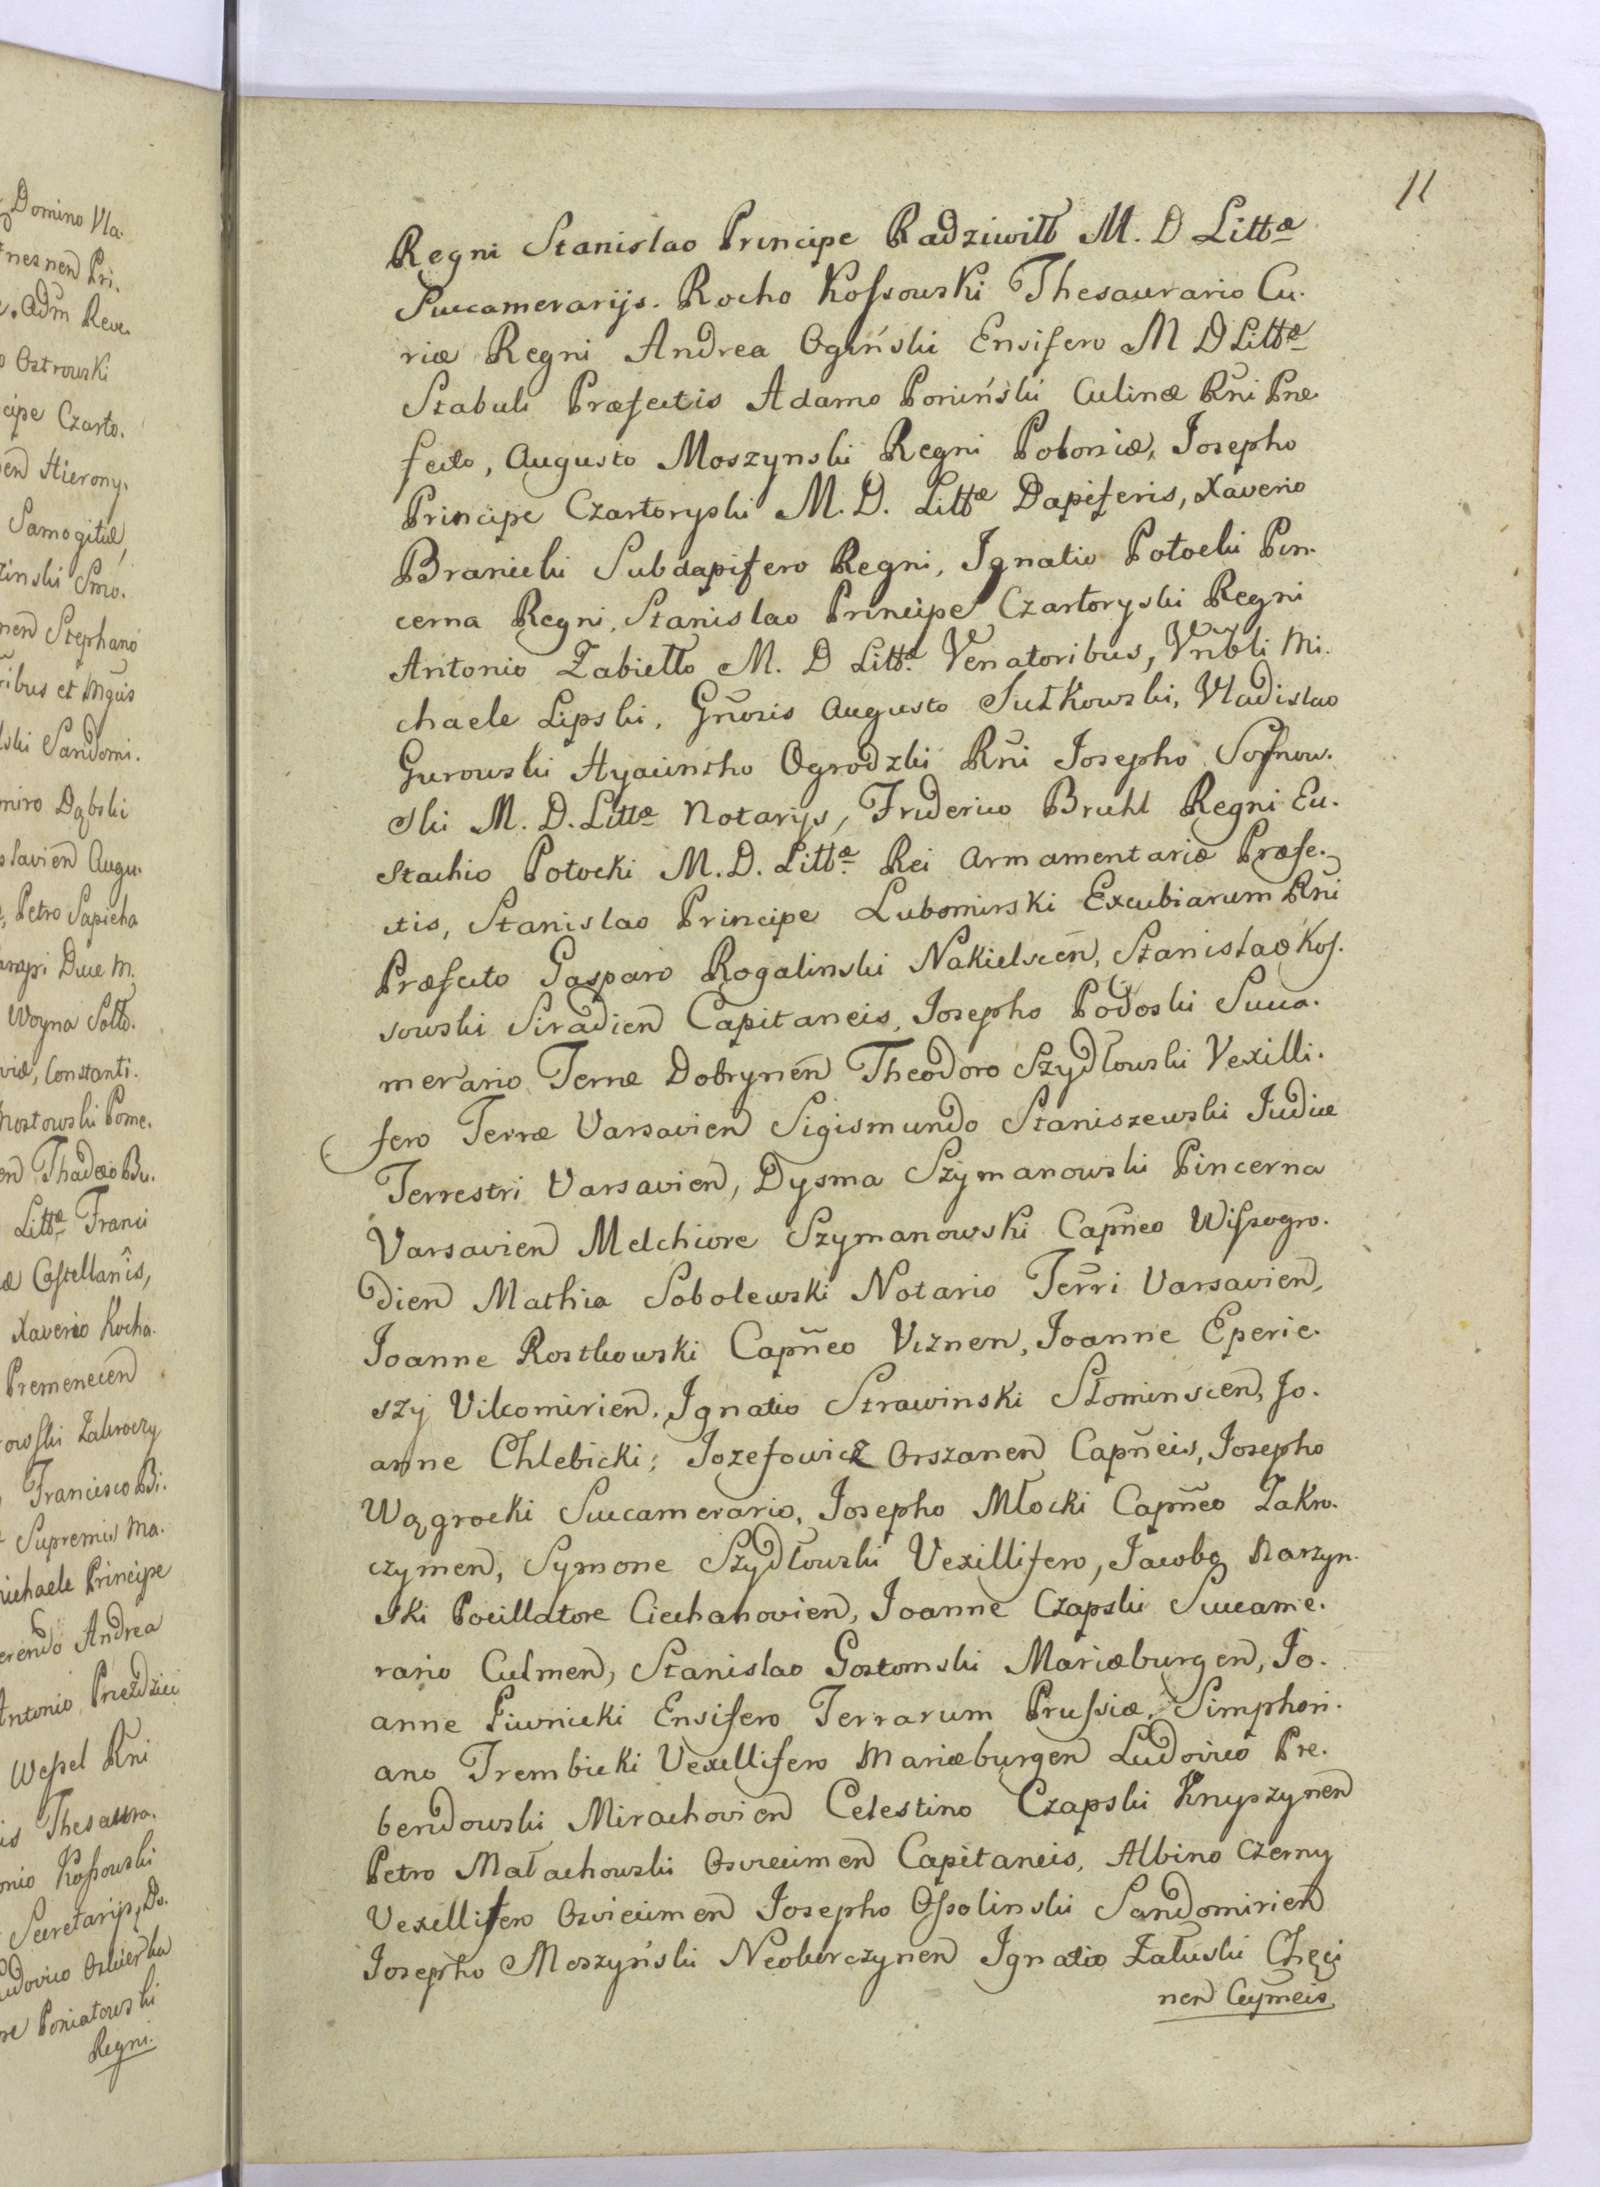 Domino Vla.
nesnen Pri.
Adm Reve.
Ostrowski
cipe Czarto.
en Hierony.
Samogitiæ,
zinski Smo.
nen Stephano
ribus et Mgcis
lski Sandomi.
miro Dąbski
slavien Augu.
, Petro Sapieha
arapi Duce M.
Woyna Sotto.
viæ, Constanti.
Mostowski Pome.
en Thadæo Bu.
Littæ Franci
æ Castellanis,
Xaverio Kocha.
Premenecen
rowski Zakroczy
Francisco Bi.
Supremis Ma.
ichaele Principe
erendo Andrea
Antonio Przezdzieci
Wessel Rni
is Thesaura.
onio Kossowski
Secretarijs, Do.
udovico Oskierka
re Poniatowski
Regni.
11
Regni Stanislao Principe Radziwiłł M. D Littæ
Succamerarijs. Rocho Kossowski Thesaurario Cu.
riæ Regni Andrea Ogiński Ensifero M D Littæ
Stabuli Præfectis Adamo Poniński Culinæ Rni Præ.
fecto, Augusto Moszynski Regni Poloniæ, Josepho
Principe Czartoryski M. D. Littæ Dapiferis, Xaverio
Branicki Subdapifero Regni, Ignatio Potocki Pin.
cerna Regni, Stanislao Principe Czartoryski Regni
Antonio Zabiełło M. D Littæ Venatoribus, Vnbli Mi.
chaele Lipski, Gnosis Augusto Sułkowski, Vladislao
Gurowski Hyacintho Ogrodzki Rni Josepho Sosnow.
ski M. D. Littæ Notarijs, Friderico Bruhl Regni Eu.
stachio Potocki M. D. Littæ Rei Armamentariæ Præfe.
ctis, Stanislao Principe Lubomirski Excubiarum Rni
Præfecto Gasparo Rogalinski Nakielscen, Stanislao Kos.
sowski Siradien Capitaneis, Josepho Podoski Succa.
merario Terræ Dobrynen Theodoro Szydłowski Vexilli.
fero Terræ Varsavien Sigismundo Staniszewski Judice
Terrestri Varsavien, Dysma Szymanowski Pincerna
Varsavien Melchiore Szymanowski Capneo Wissogro.
dien Mathia Sobolewski Notario Terri Varsavien,
Joanne Rostkowski Capneo Viznen, Joanne Eperie.
szy Vilcomirien. Ignatio Strawinski Słominscen, Jo.
anne Chlebicki; Jozefowicz Orszanen Capneis, Josepho
Wągrocki Succamerario, Josepho Młocki Capneo Zakro.
czymen, Symone Szydłowski Vexillifero, Jacobo Narzyn.
ski Pocillatore Ciechanovien, Joanne Czapski Succame.
rario Culmen, Stanislao Gostomski Mariæburgen, Jo.
anne Piwnicki Ensifero Terrarum Prussiæ, Simphori.
ano Trembicki Vexillifero Mariæburgen Ludovico Pre.
bendowski Mirachovien Celestino Czapski Knyszynen
Petro Małachowski Osviecimen Capitaneis, Albino Czerny
Vexillifero Osviecimen Josepho Ossolinski Sandomirien
Josepho Moszyński Neokorczynen Ignatio Załuski Chęci
nen Capneis